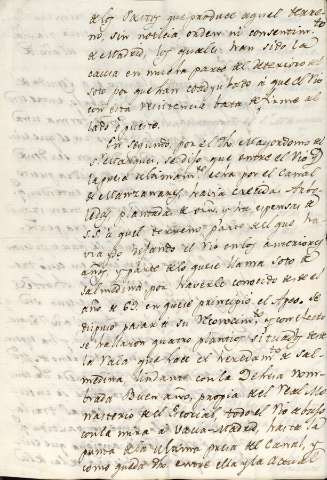 de los Pastos que produce aquel terre
no, sin noticia orden ni consentim.to
de Madrid, los quales han sido la
causa en mucha parte del deterioro del
soto por que han contribuido á que el Rio
con esta resistencia bata de firme al
lado opuesto.
En segundo, por el Mayordomo del
S.r se dijo que entre el Rio y
la presa ultimam.te echa por el Canal
de Manzanares havia crecidas Arbo
ledas, plantada de orn. y a expensas de
S.E. aquel terreno parte del que ha
via ido dejando el Rio en los anteriores
años, y parte de lo que se llama soto de
Salmedina, por haverlo conocido desde el
año de 69. en que se principió el Apeo. Se
dispuso pasar a su Reconocim.to y con efecto
se hallaron quatro plantios situados desde
la Vala que hace el heredam.to de Sal
medina, lindante con la Dehesa nom
brada Buen año, propia del Real Mo
nasterio del Escorial, todo el Rio abajo
con la mira a Vacia-Madrid, hasta la
punta de la Ultima presa del Canal, y
como queda dho entre ella y la